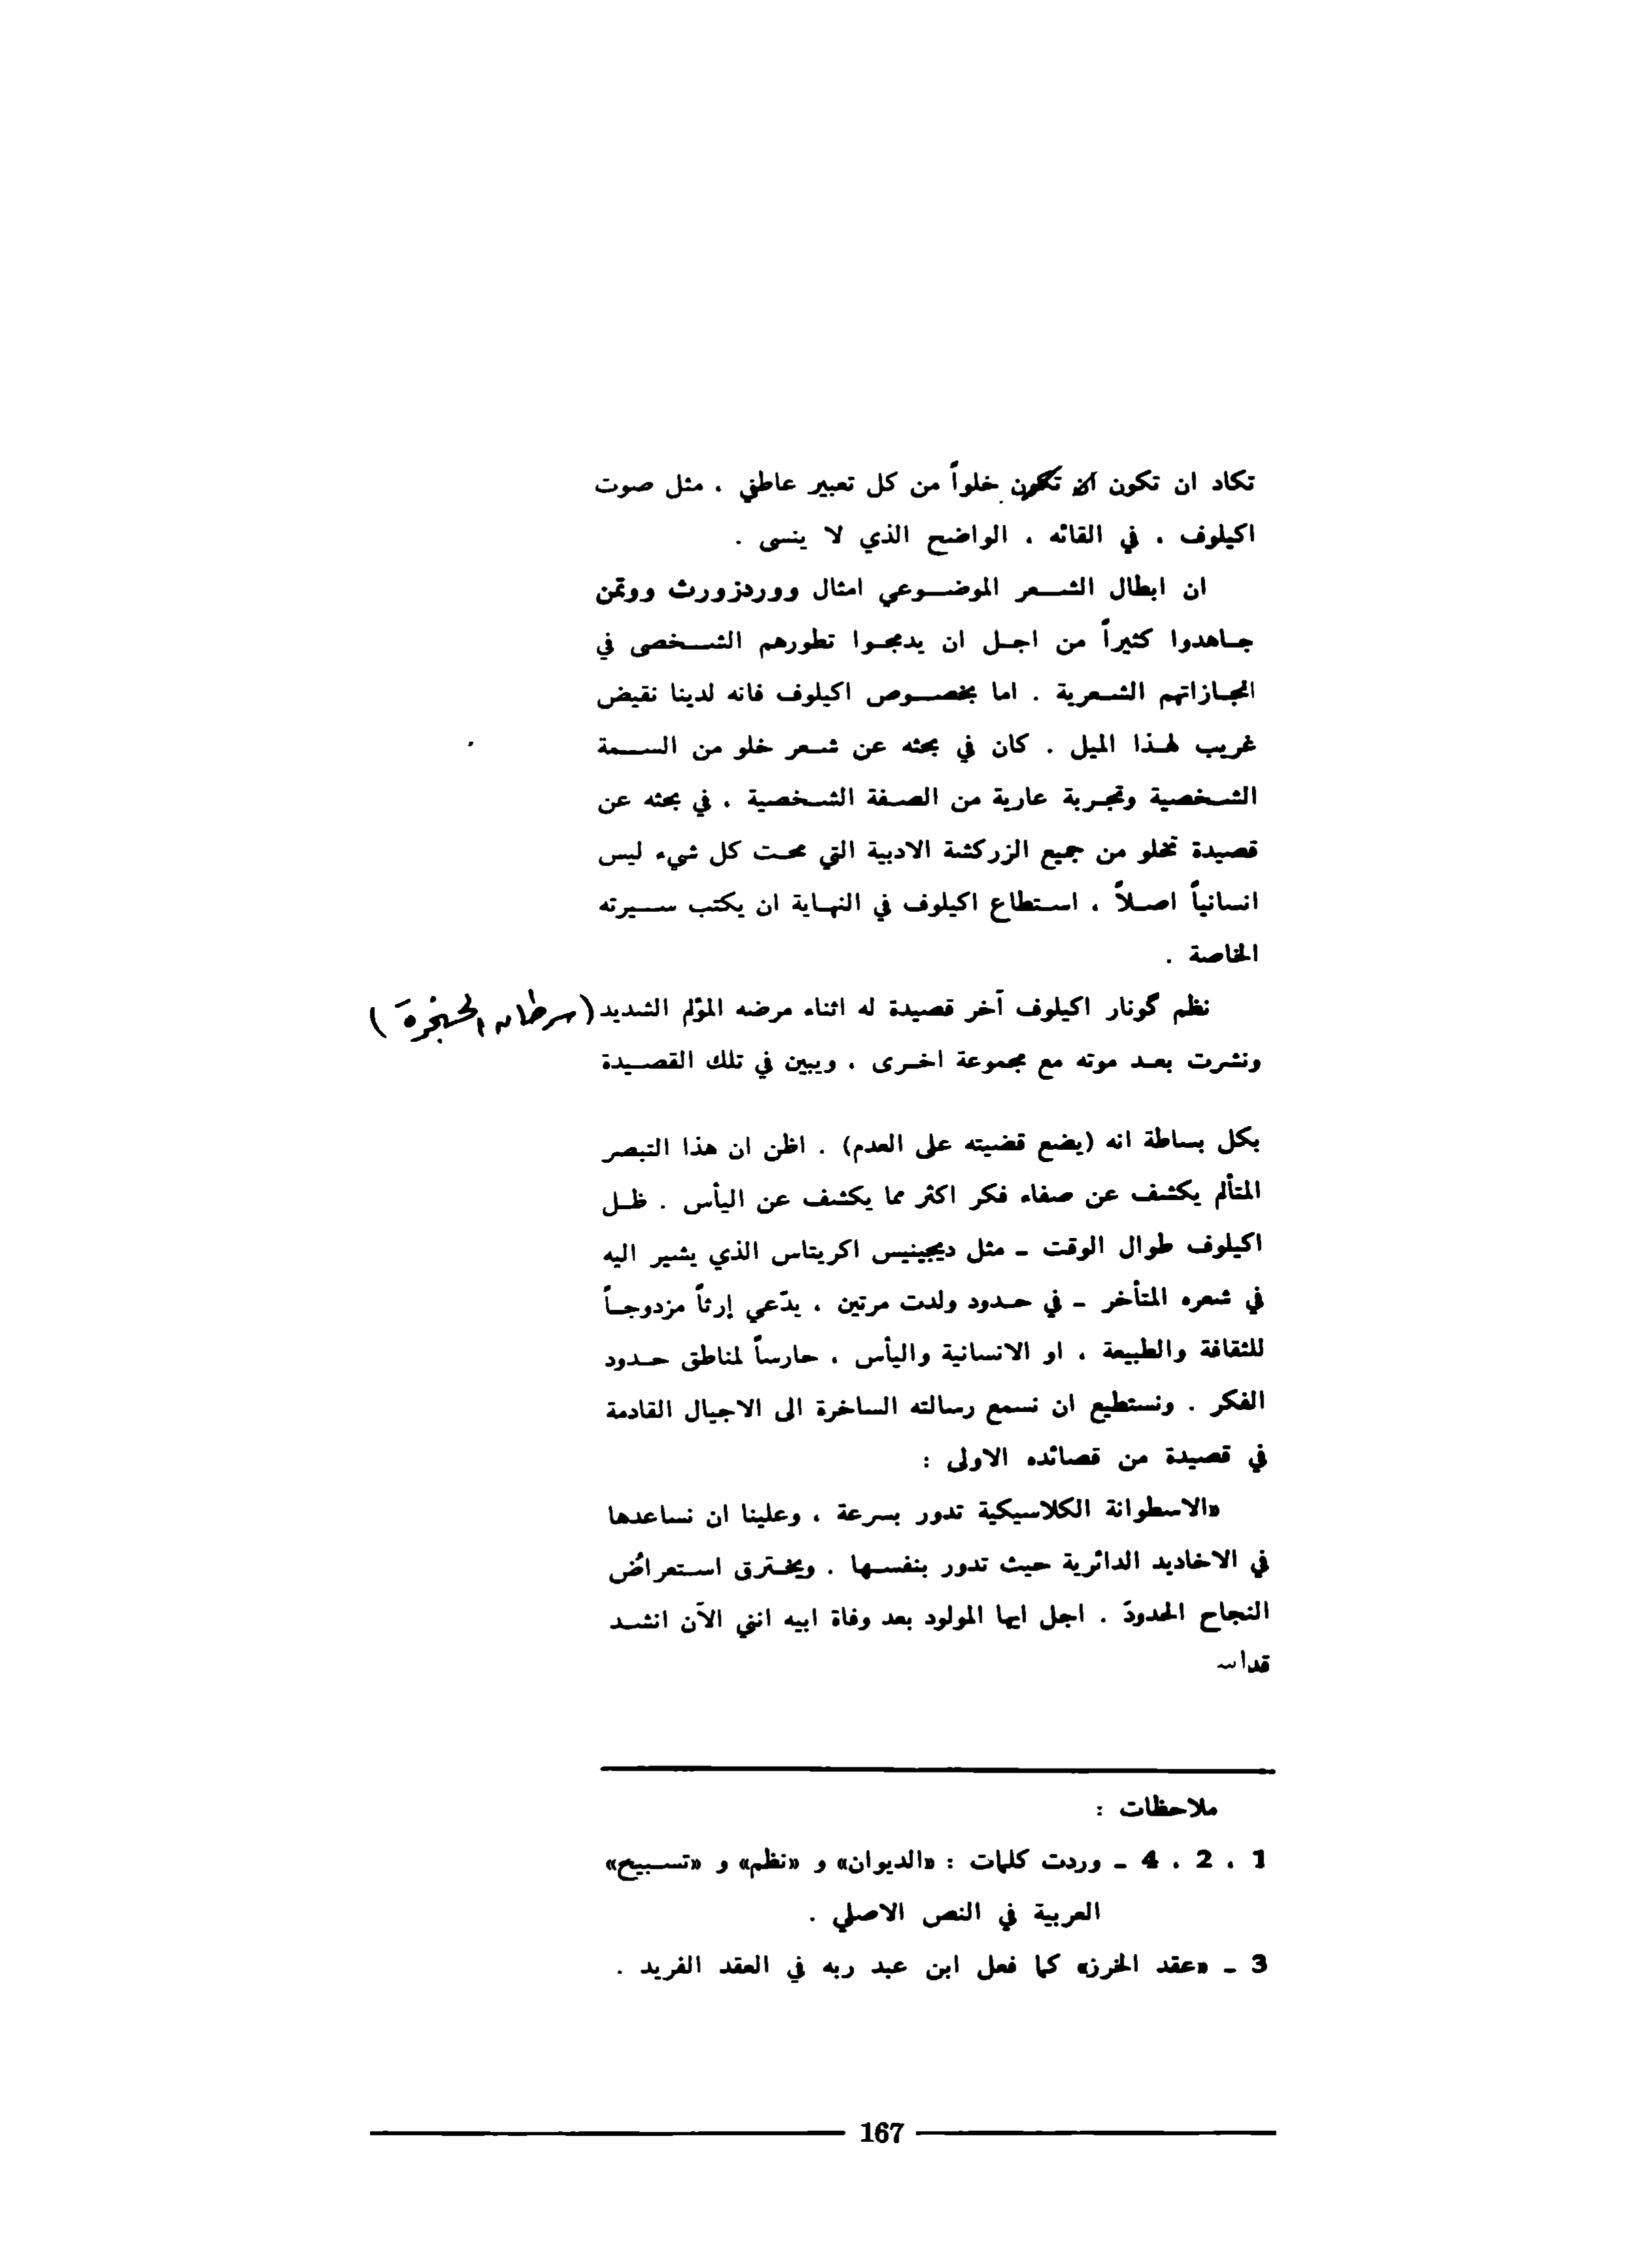 تكاد ان تكون ان تكون خلواً من كل تعبير عاطفي ، مثل صوت
اكيلوف ، في القائه ، الواضح الذي لا ينسى .
ان ابطال الشعر الموضوعي امثال ووردزورث ووتمن
جاهدوا كثيراً من اجل ان يدمجوا تطورهم الشخصى في
انجازاتهم الشعرية . اما بخصوص اكيلوف فانه لدينا نقيض
غريب لهذا الميل . كان في بحثه عن شعر خلو من السمة
الشخصية وتجربة عارية من الصفة الشخصية ، في بحثه عن
قصيدة تخلو من جميع الزركشة الادبية التي محت كل شيء ليس
انسانياً اصلاً ، استطاع اكيلوف في النهاية ان يكتب سيرته
الخاصة .
نظم گونار اكيلوف آخر قصيدة له اثناء مرضه المؤلم الشديد (سرطان الحنجرة)
ونشرت بعد موته مع مجموعة اخرى ، ويبين في تلك القصيدة
بكل بساطة انه (يضع قضيته على العدم) . اظن ان هذا التبصر
المتألم يكشف عن صفاء فكر اكثر مما يكشف عن اليأس . ظل
اكيلوف طوال الوقت - مثل ديجينيس اكريتاس الذي يشير اليه
في شعره المتأخر - في حدود ولدت مرتين ، يدّعي إرثاً مزدوجاً
للثقافة والطبيعة ، او الانسانية واليأس ، حارساً لمناطق حدود
الفكر . ونستطيع ان نسمع رسالته الساخرة الى الاجيال القادمة
في قصيدة من قصائده الاولى :
«الاسطوانة الكلاسيكية تدور بسرعة ، وعلينا ان نساعدها
في الاخاديد الدائرية حيث تدور بنفسها . ويخترق استعراضُ
النجاح الحدودَ . اجل ايها المولود بعد وفاة ابيه انني الآن انشد
قداس
ملاحظات :
1 ، 2 ، 4 - وردت كلمات : «الديوان» و «نظم» و «تسبيح»
العربية في النص الاصلي .
3 - «عقد الخرز» كما فعل ابن عبد ربه في العقد الفريد .
167